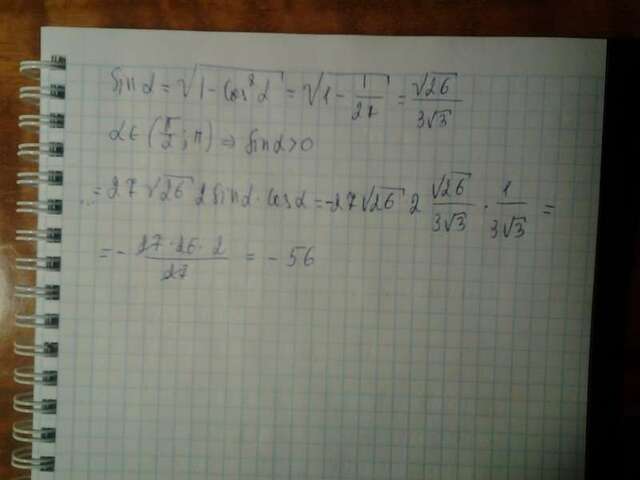 sin α = √(1 - cos² α) = √(1 - 1/27) = √26/(3√3)
α ∈ (π/2; π) ⇒ sin α > 0
...= 27√26 2 sin α · cos α = -27√26 2 √26/(3√3) · 1/(3√3) =
= - (27 · 26 · 2)/27 = - 56